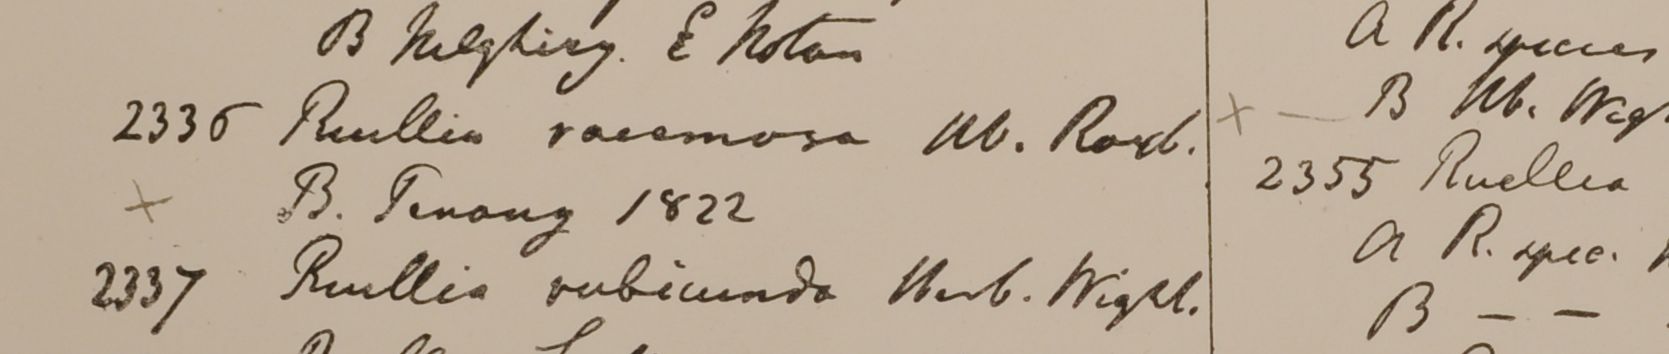 B Neilghiry. E Notan
2336 Ruellia racemosa Hb. Roxb.
B. Penang 1822
2337 Ruellia rubicunda Herb. Wight.
A R. species
× — B Hb. Wigh
2355 Ruellia
A R. spec.
B — —